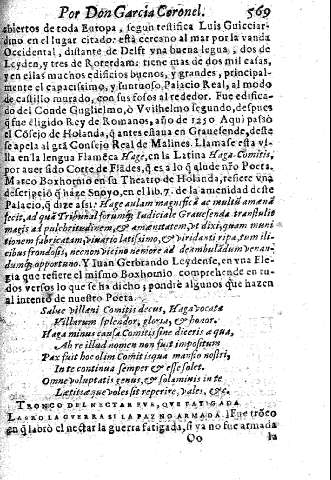 Por Don Garcia Coronel. 569
abiertos de toda Europa, segun testifica Luis Guicciar-
dino en el lugar citado: està cercano al mar por la vanda
Occidental, distante de Delft vna buena legua, dos de
Leyden, y tres de Roterdam: tiene mas de dos mil casas,
y en ellas muchos edificios buenos, y grandes, principal-
mente el capacissimo, y suntuoso Palacio Real, al modo
de castillo murado, con sus fosos al rededor. Fue edifica-
do del Conde Guglielmo, ò Vvilhelmo segundo, despues
q̃ fue eligido Rey de Romanos, año de 1250 Aqui passò
el Cõsejo de Holanda, q̃ antes estaua en Grauesende, deste
se apela al grã Consejo Real de Malines. Llamase esta vi-
lla en la lengua Flamẽca Hage, en la Latina Haga-Comitis,
por auer sido Corte de Flãdes, q̃ es a lo q̃ alude nrõ Poeta.
Marco Boxhornio en su Theatro de Holanda, refiere vna
descripciõ q̃ haze Snoyo, en el lib. 7. de la amenidad deste
Palacio, q̃ dize assi: Hage aulam magnificã ac multò amœnã
fecit, ad quã Tribunal forumq; Iudiciale Grauesenda transtulit
magis ad pulchritudinem, & amœnitatem, vt dixi, quam muni-
tionem fabricatam, viuario latissimo, & viridanti ripa, tum ili-
cibus frondosis, necnon vicino nemore ad deambulãdum venan-
dumq; opportuno. Y Iuan Gerbrando Leydense, en vna Ele-
gia que refiere el mismo Boxhornio comprehende en to-
dos versos lo que se ha dicho; pondrè algunos que hazen
al intento de nuestro Poeta.
Salue villani Comitis decus, Haga vocata
Villarum splendor, gloria, & honor.
Haga minus causa Comitis sine diceris a qua,
Ab re illud nomen non fuit impositum
Pax fuit hoc olim Comitisqua mansio nostri,
In te continua semper & esse solet.
Omne voluptatis genus, & solaminis in te
Lætitiæque voles sit reperire, vales, &c.
TRONCO DEL NECTAR FVE, QVE FATIGADA
LABRÒ LA GVERRA SI LA PAZ NO ARMADA. Fue trõco
en q̃ labrò el nectar la guerra fatigada, si ya no fue armada
Oo la